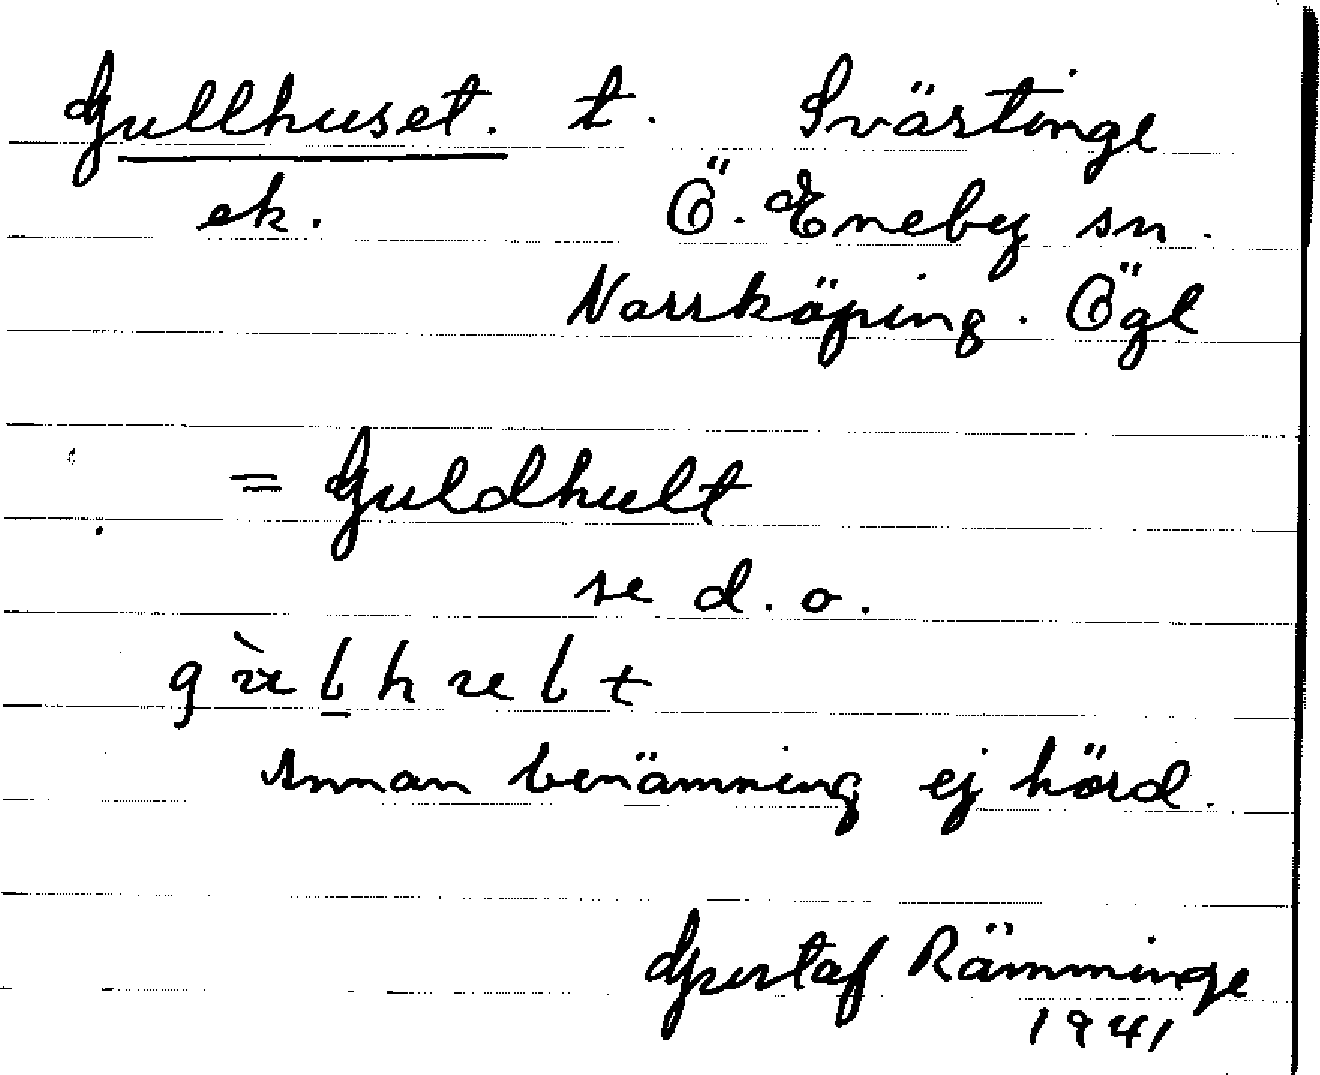 Gullhuset. t. Svärtinge
ek. Ö. Eneby sn.
Norrköping. Ögl
= Guldhult
se d. o.
gùlhult
Annan benämning ej hörd.
Gustaf Rämminge
1941